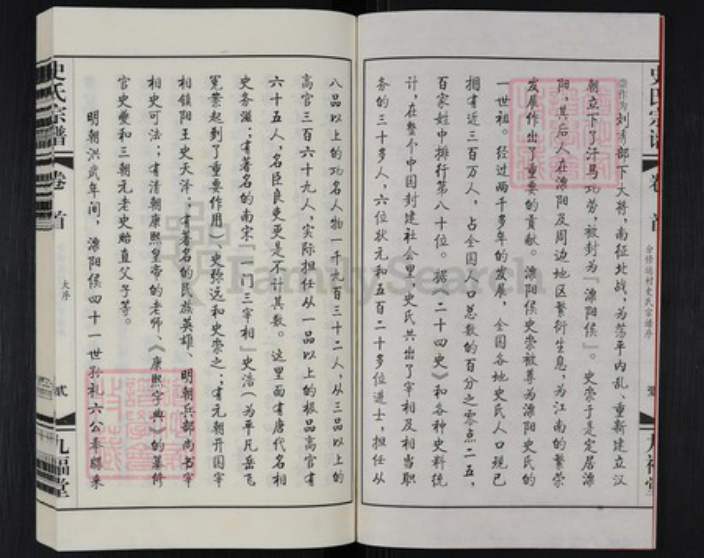 崇作为刘秀部下大将,南征北战,为荡平内乱、重新建立汉
朝立下了汗马功劳,被封为「溧阳侯」。史崇于是定居溧
阳,其后人在溧阳及周边地区繁衍生息,为江南的繁荣
发展作出了重要的贡献。溧阳侯史崇被尊为溧阳史氏的
一世祖。经过两千多年的发展,全国各地史氏人口现已
拥有近三百万人,占全国人口总数的百分之零点二五,
百家姓中排行第八十位。据《二十四史》和各种史料统
计,在整个中国封建社会里,史氏共出了宰相及相当职
务的三十多人,六位状元和五百二十多位进士,担任从
八品以上的功名人物一千九百三十二人,从三品以上的
高官三百六十九人,实际担任从一品以上的极品高官有
六十五人,名臣良吏更是不计其数。这里面有唐代名相
史务滋;有著名的南宋「一门三宰相」史浩(为平凡岳飞
冤案起到了重要作用)、史弥远和史嵩之;有元朝开国宰
相镇阳王史天泽;有著名的民族英雄、明朝兵部尚书宰
相史可法;有清朝康熙皇帝的老师、《康熙字典》的纂修
官史夔和三朝元老史贻直父子等。
明朝洪武年间,溧阳侯四十一世孙礼六公奉赐来
史氏宗谱
卷首
分修运村史氏宗谱序
九福堂
史氏宗谱
卷首
大序
贰
九福堂
FamilySearch